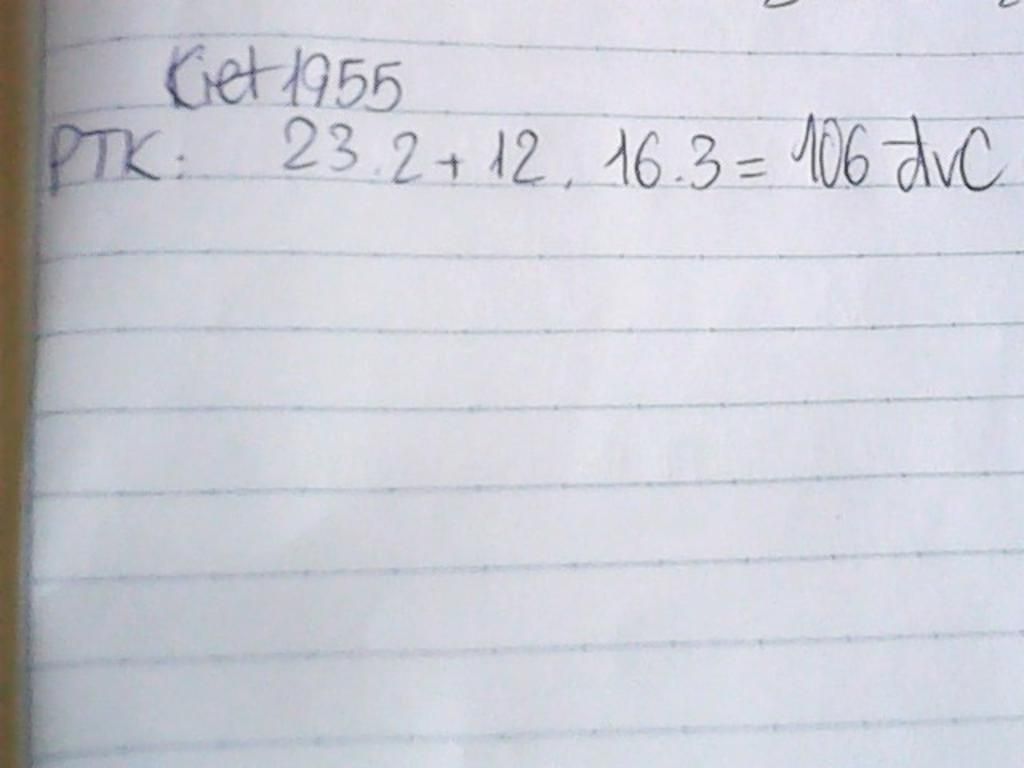 Kiet1955
PTK: 23.2 + 12. 16.3 = 106 đvC